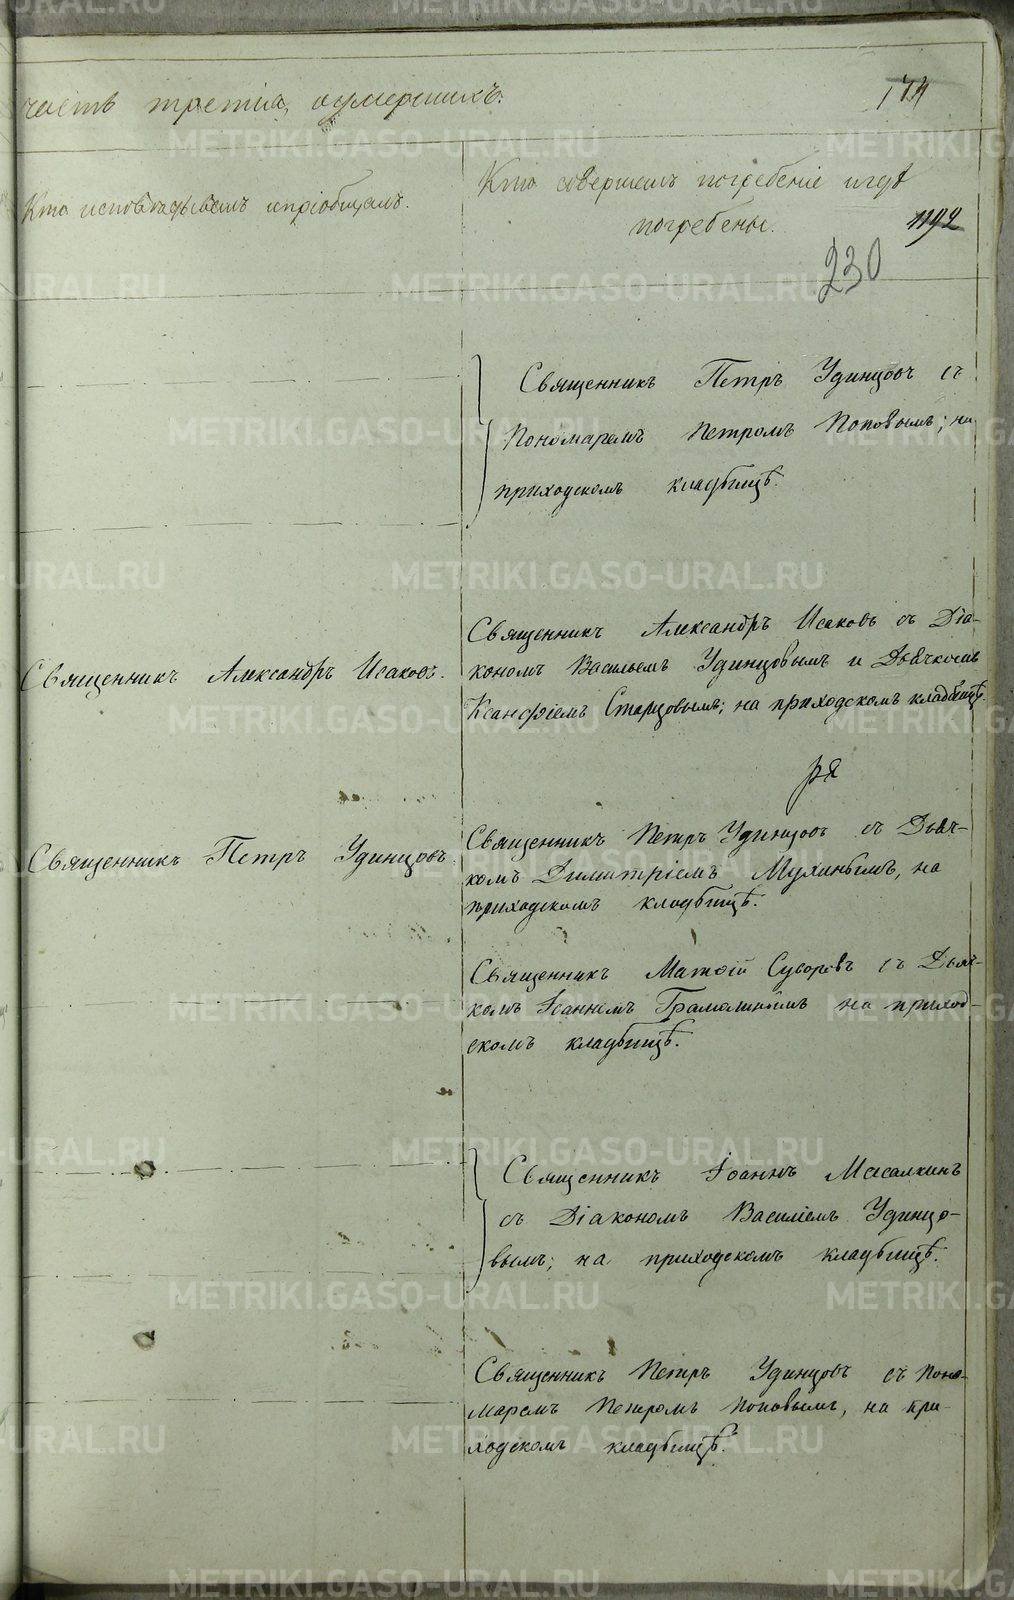 часть третія, оумершихъ.
174
Кто исповѣдывалъ и пріобщалъ.
Кто совершалъ погребеніе и гдѣ
погребены.
1192
230
Священникъ Петръ Удинцовъ съ
Пономаремъ Петромъ Поповымъ; на
приходскомъ кладбищѣ.
Священникъ Александръ Исаковъ.
Священникъ Александръ Исаковъ съ Діа-
кономъ Васильемъ Удинцовымъ и Дьячкомъ
Ксанфіемъ Старцовымъ; на приходскомъ кладбищѣ.
Священникъ Петръ Удинцовъ.
Священникъ Петръ Удинцовъ съ Дьяч-
комъ Димитріемъ Мухинымъ, на
приходскомъ кладбищѣ.
Священникъ Матѳій Суворовъ съ Дьяч-
комъ Іоанномъ на приход-
скомъ кладбищѣ.
Священникъ Іоаннъ Масалкинъ
съ Діакономъ Василіемъ Удинцо-
вымъ; на приходскомъ кладбищѣ.
Священникъ Петръ Удинцовъ съ Поно-
маремъ Петромъ Поповымъ, на при-
ходскомъ кладбищѣ.
METRIKI.GASO-URAL.RU